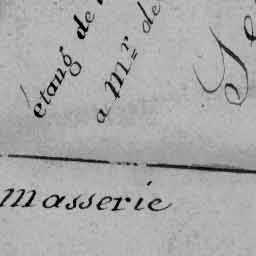 étang de
a Mr de
masserie